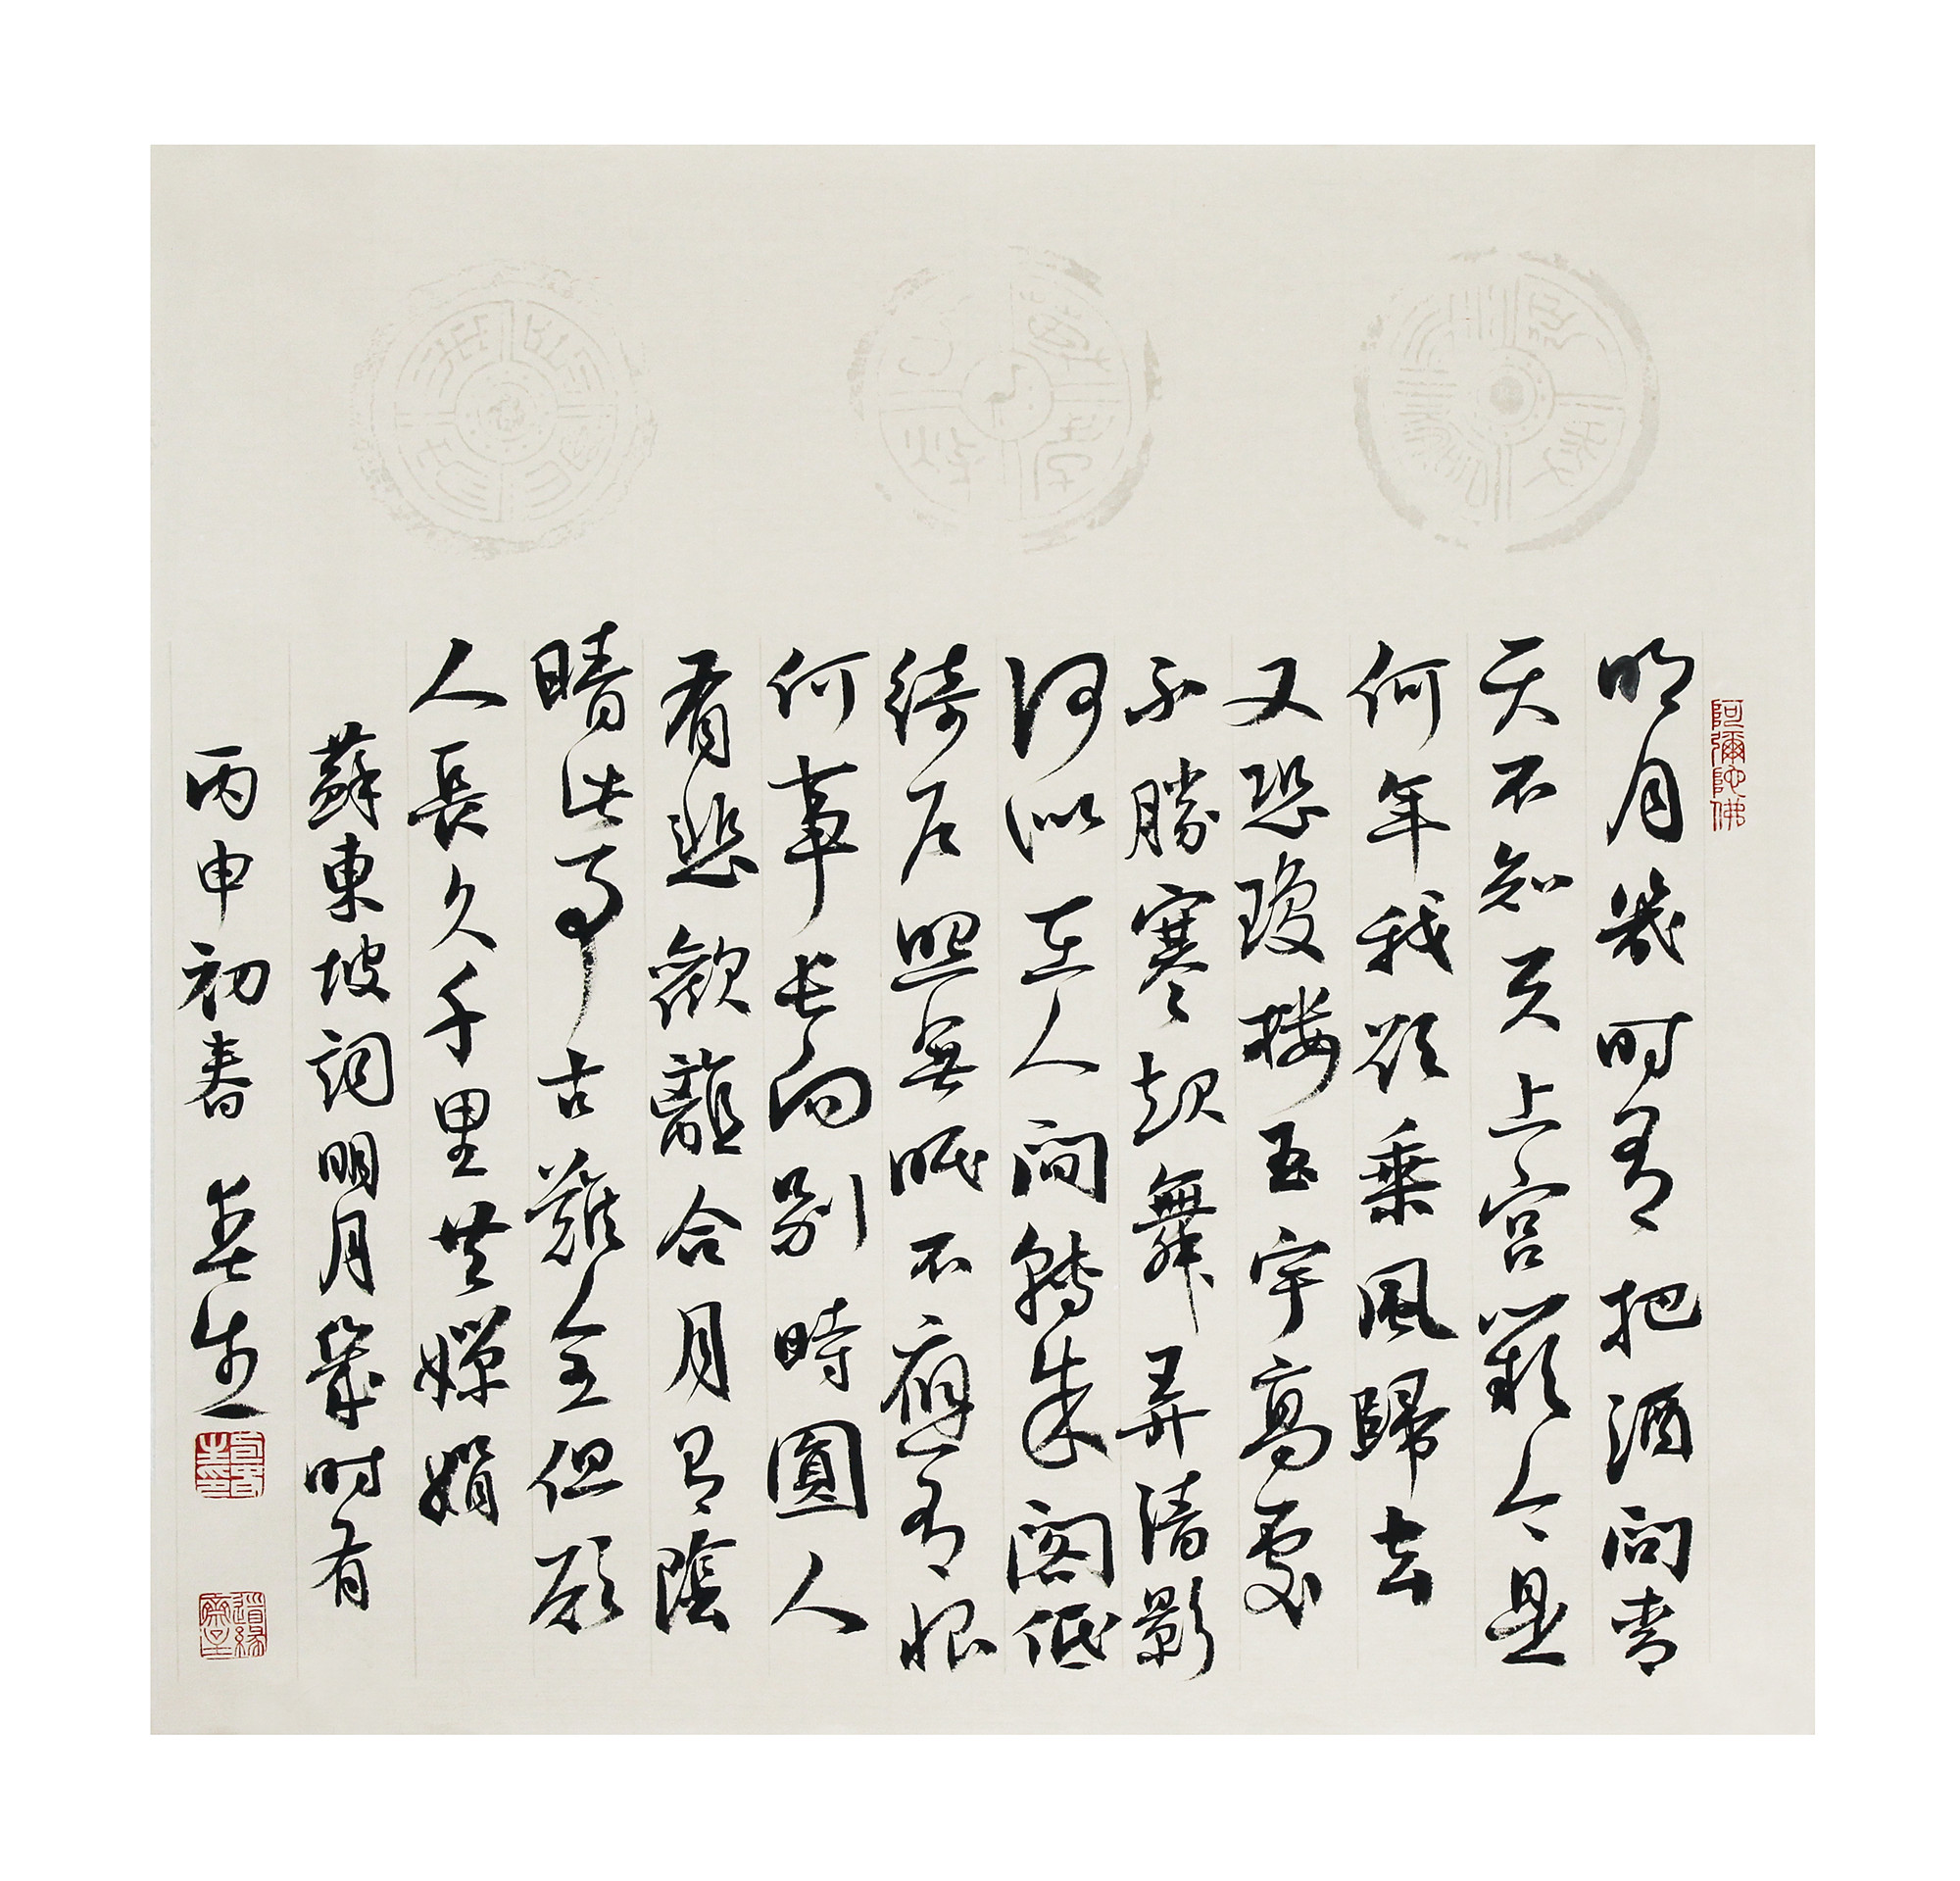 阿彌陀佛
明月幾时有把酒问青
天不知天上宫闕今是
何年我欲乘風歸去
又恐瓊楼玉宇高處
不勝寒起舞弄清影
何似在人间轉朱阁低
绮户照無眠不應有恨
何事長向别時圓人
有悲歡離合月有陰
晴此事古難全但願
人長久千里共嬋娟
蘇東坡詞明月幾时有
丙申初春